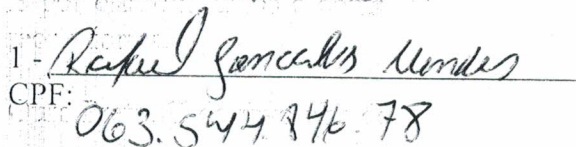 1 - Rafael Goncalves Mendes
CPF:
063.544.846.78